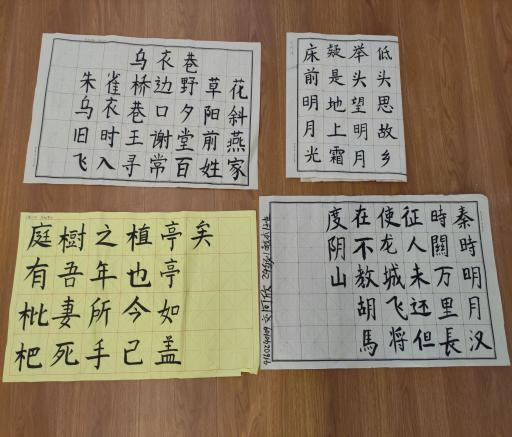 乌衣巷
朱雀桥边野草花
乌衣巷口夕阳斜
旧时王谢堂前燕
飞入寻常百姓家
床前明月光
疑是地上霜
举头望明月
低头思故乡
庭有枇杷
樹吾妻死
之年所手
植也今已
亭亭如盖
矣
秦時明月汉
時關万里長
征人未还但
使龙城飞将
在不教胡馬
度阴山